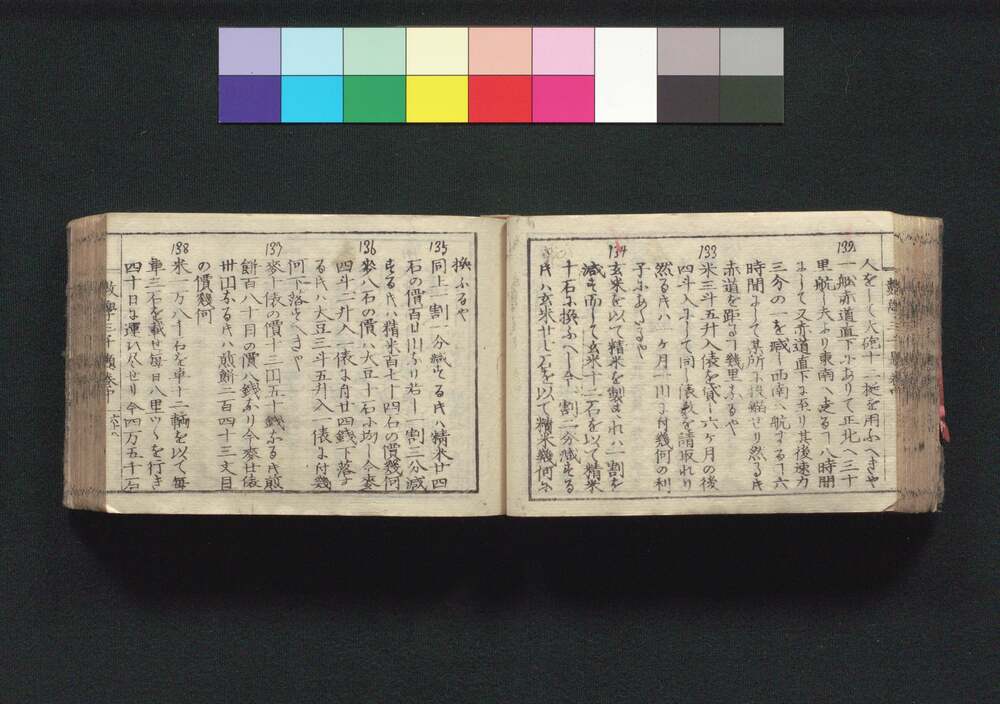 人をして大砲十二挺を用ふへきや
132 一舩赤道直下にありて正北へ三十
里航し夫より東南へ走る𪜈八時間
にして又赤道直下に至り其後速力
三分の一を減し西南へ航する𪜈六
時間にして某所に投錨せり然る时
赤道を距る𪜈幾里なるや
133 米三斗五升入俵を貸し六ヶ月の後
四斗入にして同し俵数を請取れり
然る时ハ一ヶ月一円に付幾何の利
子にあたるや
134 玄米を以て精米を製すれハ一割を
減す而して玄米十一石を以て精米
十石に換ふへし今一割二分減する
时ハ玄米廿七石を以て精米幾何に
換ふるや
135 同上一割一分減する时ハ精米廿四
石の價百廿円なり若し一割三分減
する时ハ精米百七十四石の價幾何
136 麥八石の價ハ大豆十石に均し今麥
四斗二升入一俵に付廿四銭下落す
る时ハ大豆三斗五升入一俵に付幾
何下落すへきや
137 麥十俵の價十三円五十銭なる时煎
餅百八十目の價八銭なり今麥廿俵
卅円なる时ハ煎餅二百四十三文目
の價幾何
138 米一万八千石を車十二輌を以て毎
車三石を載せ毎日八里つゝを行き
四十日に運ひ尽せり今四万五十石